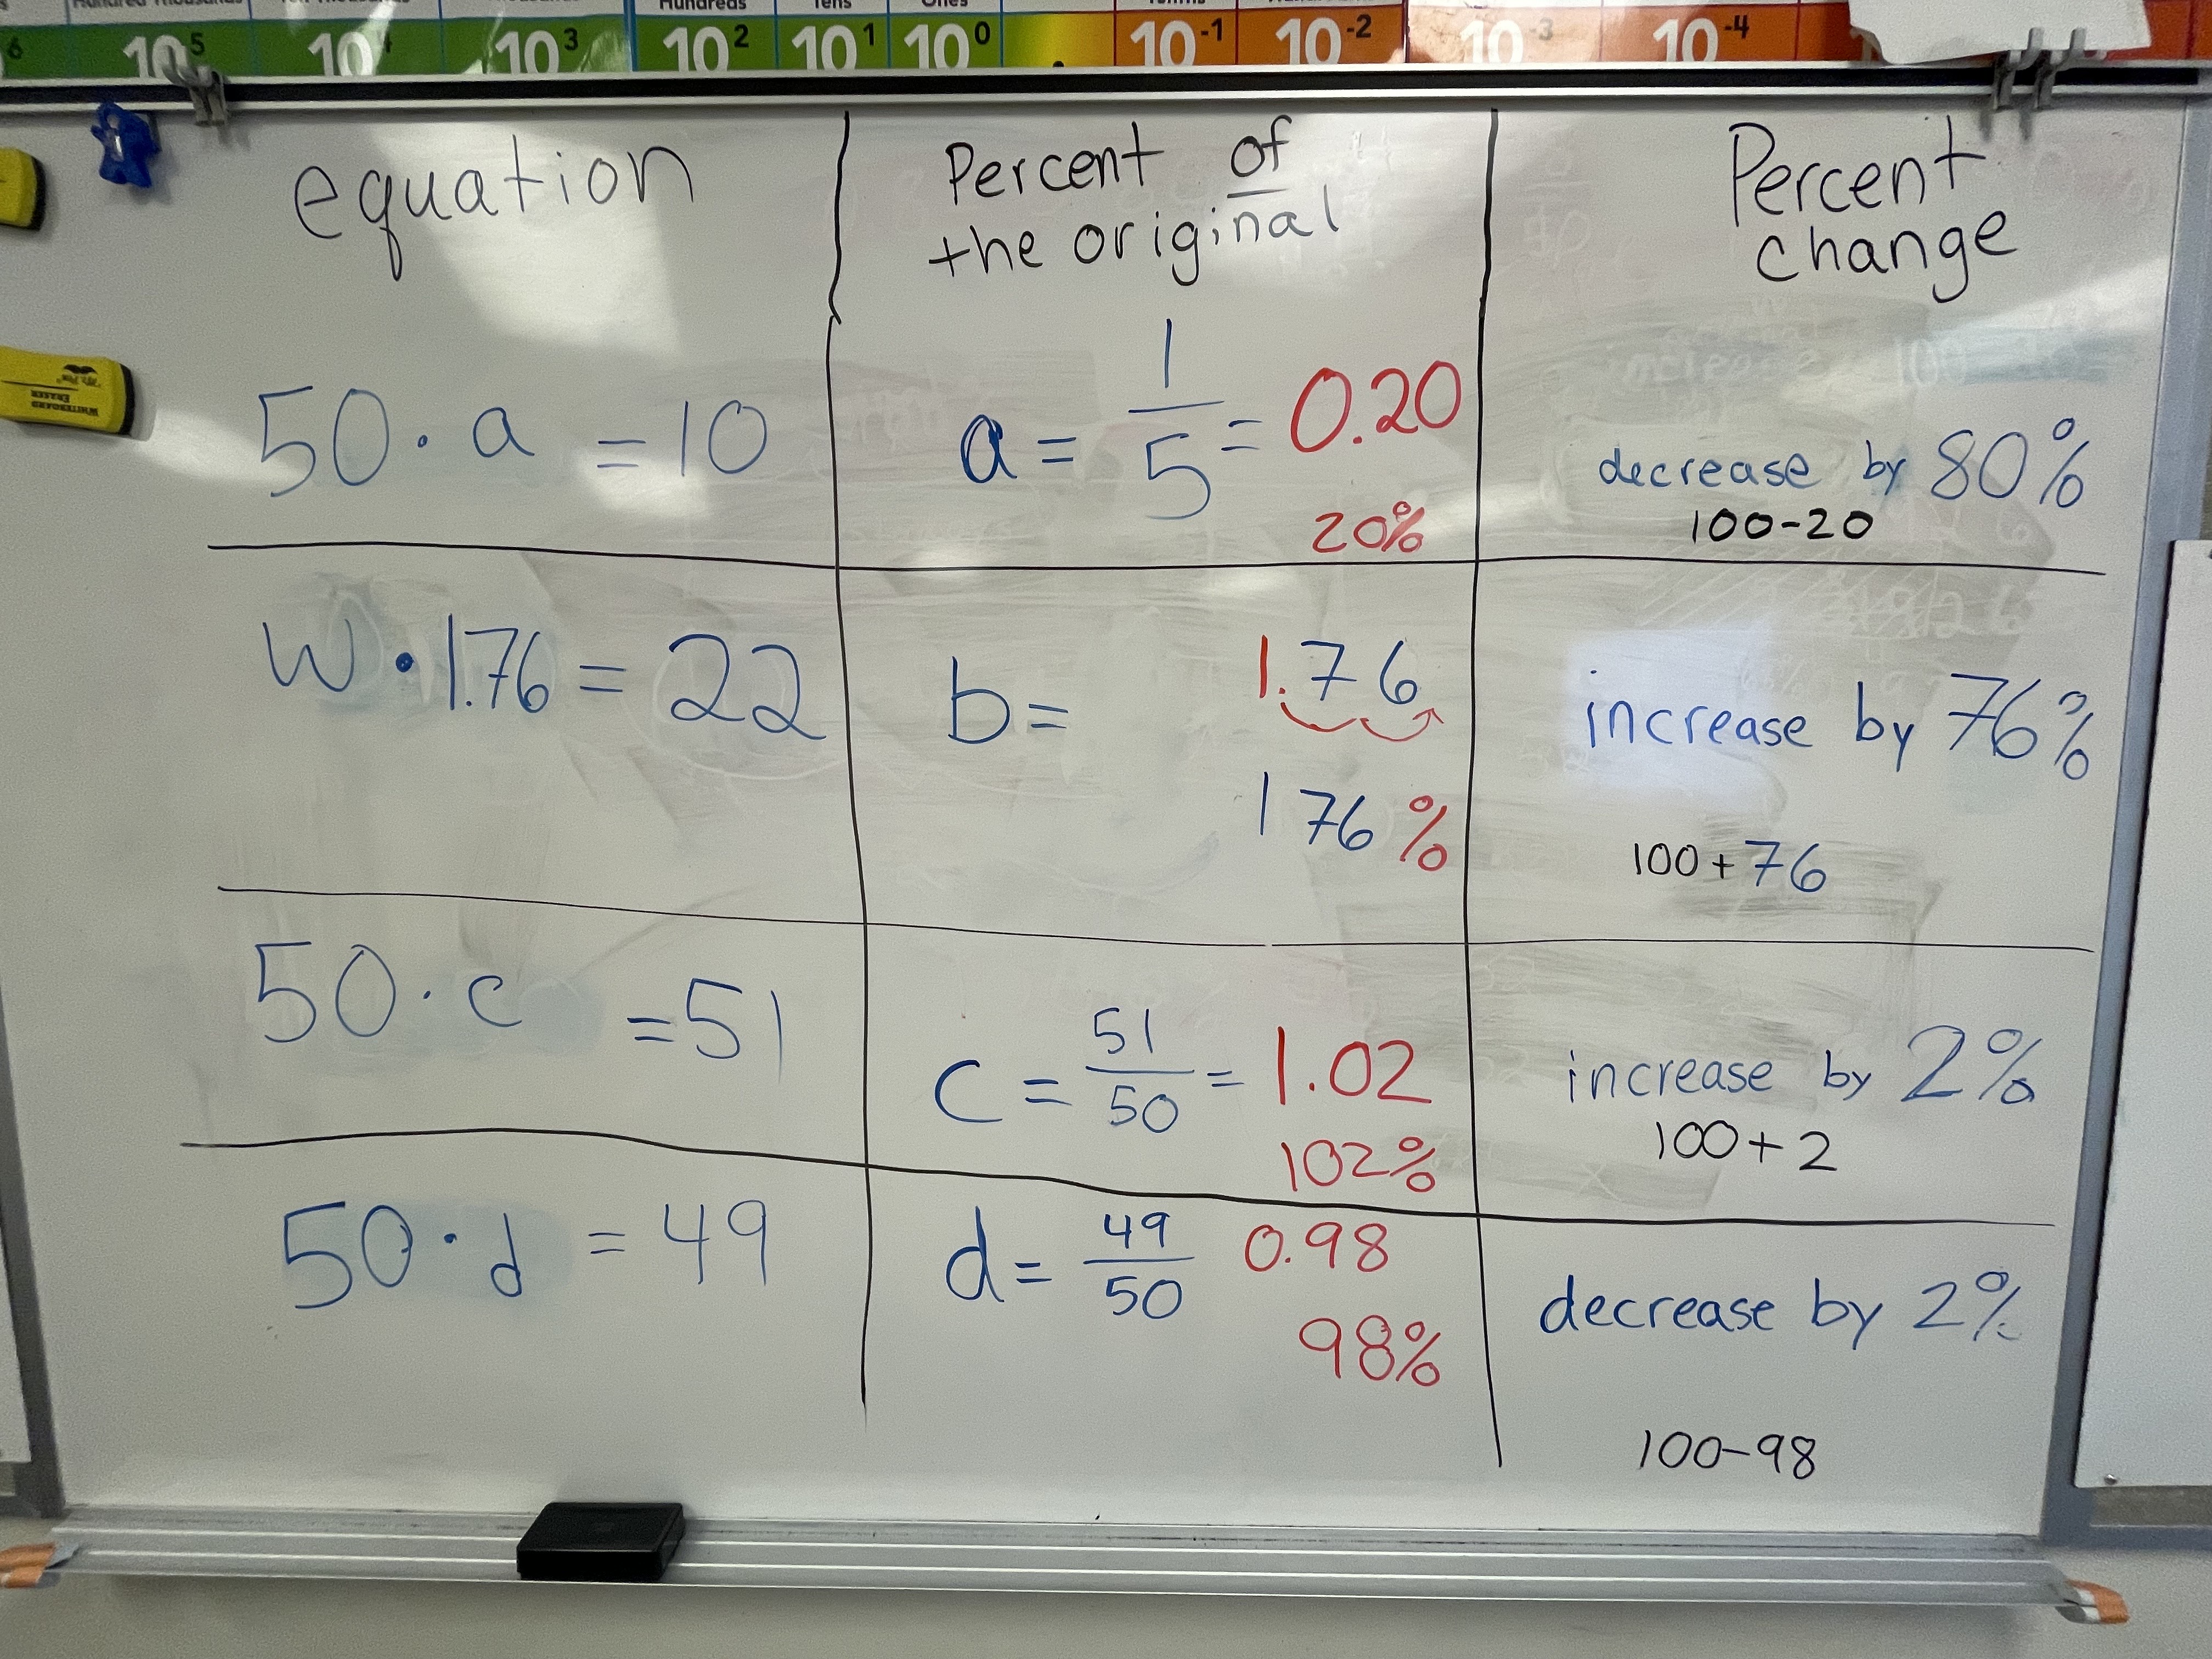 Hundreds Tens Ones
6 10^5 10 10^3 10^2 10^1 10^0 . 10^-1 10^-2 10^-3 10^-4
equation
Percent of
the original
Percent
change
50 · a = 10
a = 1/5 = 0.20
20%
decrease by 80%
100-20
w · 1.76 = 22
b = 1.76
176%
increase by 76%
100+76
50 · c = 51
c = 51/50 = 1.02
102%
increase by 2%
100+2
50 · d = 49
d = 49/50 0.98
98%
decrease by 2%
100-98
WHITEBOARD
ERASER